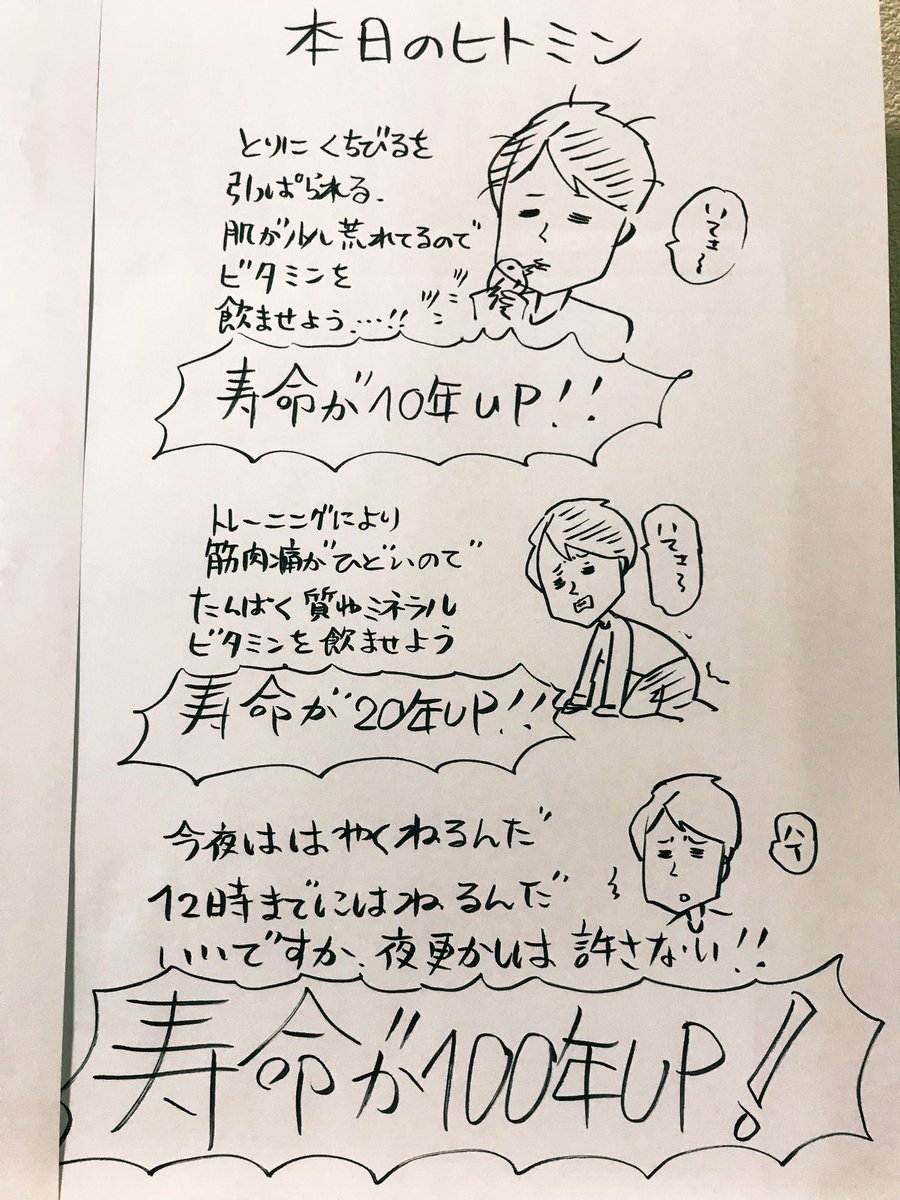 本日のヒトミン
とりにくちびるを
引っぱられる.
肌が少し荒れてるので
ビタミンを
飲ませよう....!!
いてき〜
寿命が10年UP!!
トレーニングにより
筋肉痛がひどいので
たんぱく質やミネラル
ビタミンを飲ませよう
いてき〜
寿命が20年UP!!
今夜ははやくねるんだ
12時までにはねるんだ
いいですか、夜更かしは許さない!!
ハイ
寿命が100年UP!